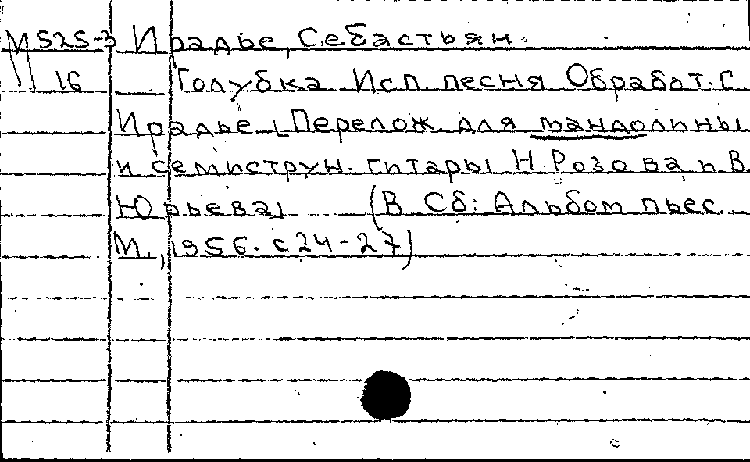 М525-3 Ирадье, Себастьян.
16 Голубка Исп песня Обработ. С.
Ирадье [Перелож для мандолины
и семиструн. гитары Н Розова и В.
Юрьева] (В Сб: Альбом пьес
М., 1956. с 24-27)